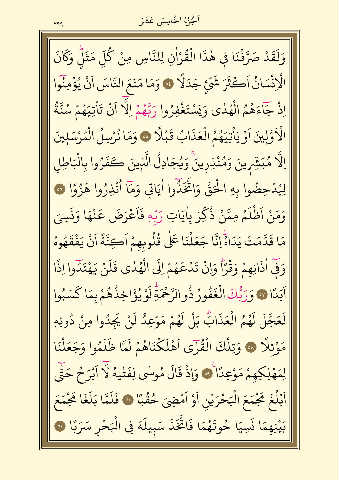 اَلْجُزْءُ الْخَامِسَ عَشَرَ
وَلَقَدْ صَرَّفْنَا فِى هٰذَا الْقُرْاٰنِ لِلنَّاسِ مِنْ كُلِّ مَثَلٍۜ وَكَانَ
الْاِنْسَانُ اَكْثَرَ شَىْءٍ جَدَلًا ﴿٥٤﴾ وَمَا مَنَعَ النَّاسَ اَنْ يُؤْمِنُٓوا
اِذْ جَٓاءَهُمُ الْهُدٰى وَيَسْتَغْفِرُوا رَبَّهُمْ اِلَّٓا اَنْ تَأْتِيَهُمْ سُنَّةُ
الْاَوَّلِينَ اَوْ يَأْتِيَهُمُ الْعَذَابُ قُبُلًا ﴿٥٥﴾ وَمَا نُرْسِلُ الْمُرْسَلِينَ
اِلَّا مُبَشِّرِينَ وَمُنْذِرِينَۚ وَيُجَادِلُ الَّذِينَ كَفَرُوا بِالْبَاطِلِ
لِيُدْحِضُوا بِهِ الْحَقَّ وَاتَّخَذُٓوا اٰيَاتِى وَمَٓا اُنْذِرُوا هُزُوًا ﴿٥٦﴾
وَمَنْ اَظْلَمُ مِمَّنْ ذُكِّرَ بِاٰيَاتِ رَبِّهِ فَاَعْرَضَ عَنْهَا وَنَسِىَ
مَا قَدَّمَتْ يَدَاهُۜ اِنَّا جَعَلْنَا عَلٰى قُلُوبِهِمْ اَكِنَّةً اَنْ يَفْقَهُوهُ
وَفِٓى اٰذَانِهِمْ وَقْرًاۜ وَاِنْ تَدْعُهُمْ اِلَى الْهُدٰى فَلَنْ يَهْتَدُٓوا اِذًا
اَبَدًا ﴿٥٧﴾ وَرَبُّكَ الْغَفُورُ ذُو الرَّحْمَةِۜ لَوْ يُؤَاخِذُهُمْ بِمَا كَسَبُوا
لَعَجَّلَ لَهُمُ الْعَذَابَۜ بَلْ لَهُمْ مَوْعِدٌ لَنْ يَجِدُوا مِنْ دُونِهِ
مَوْئِلًا ﴿٥٨﴾ وَتِلْكَ الْقُرٰٓى اَهْلَكْنَاهُمْ لَمَّا ظَلَمُوا وَجَعَلْنَا
لِمَهْلِكِهِمْ مَوْعِدًا ﴿٥٩﴾ وَاِذْ قَالَ مُوسٰى لِفَتٰيهُ لَٓا اَبْرَحُ حَتّٰٓى
اَبْلُغَ مَجْمَعَ الْبَحْرَيْنِ اَوْ اَمْضِىَ حُقُبًا ﴿٦٠﴾ فَلَمَّا بَلَغَا مَجْمَعَ
بَيْنِهِمَا نَسِيَا حُوتَهُمَا فَاتَّخَذَ سَبِيلَهُ فِى الْبَحْرِ سَرَبًا ﴿٦١﴾